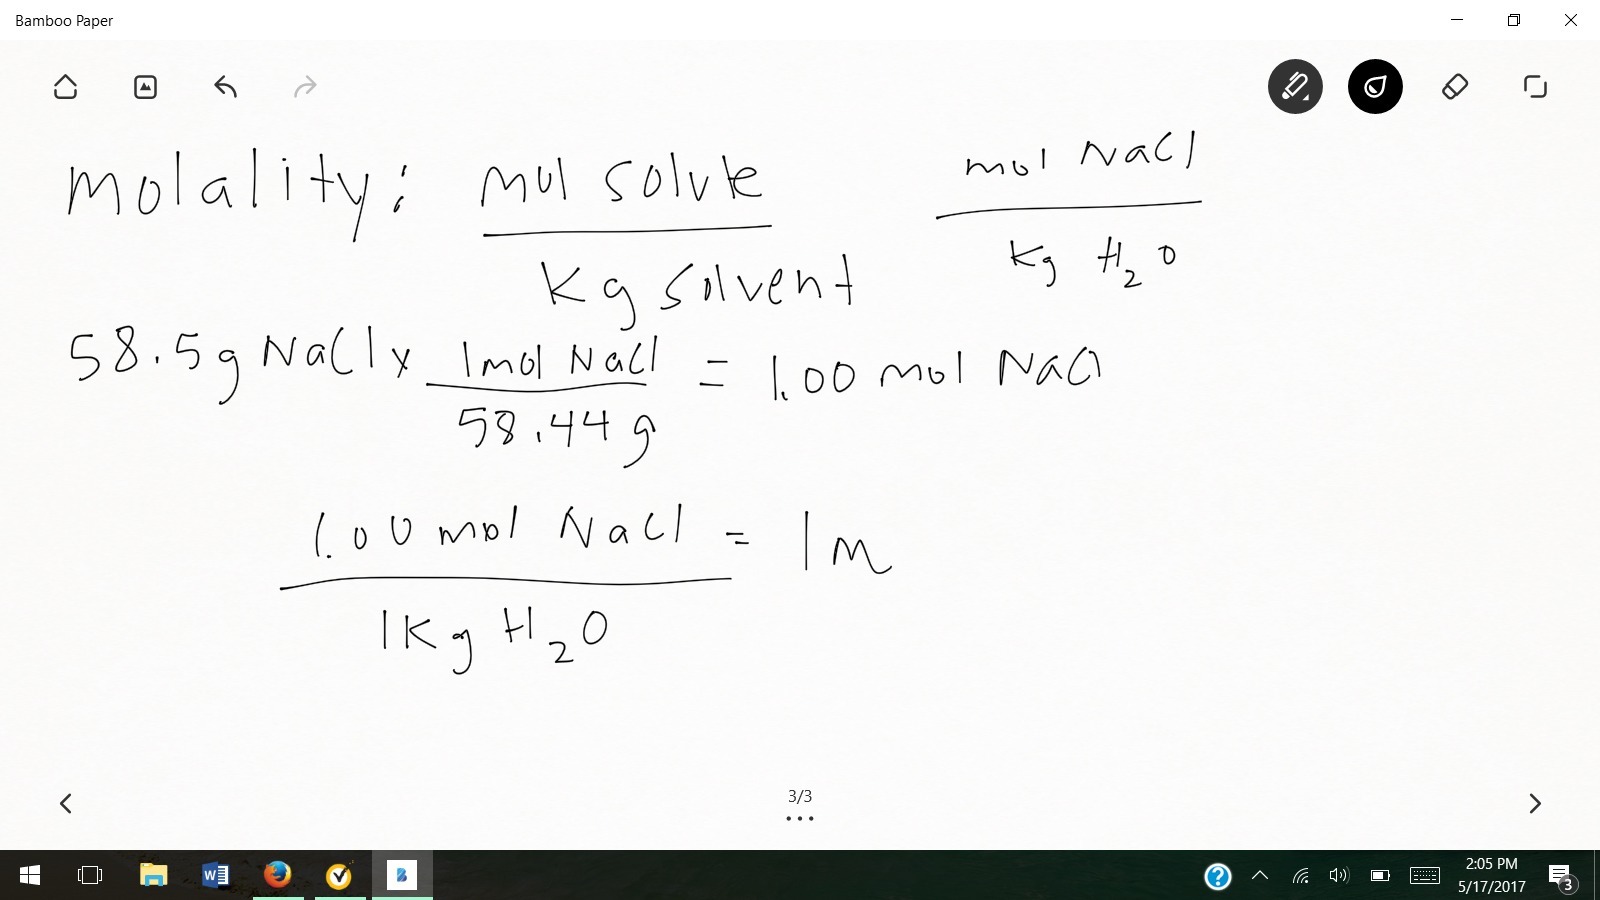 Bamboo Paper
Molality: mol solute / Kg solvent
mol NaCl / Kg H₂O
58.5g NaCl x 1 mol NaCl / 58.44 g = 1.00 mol NaCl
1.00 mol NaCl / 1 Kg H₂O = 1 m
3/3
2:05 PM
5/17/2017
3